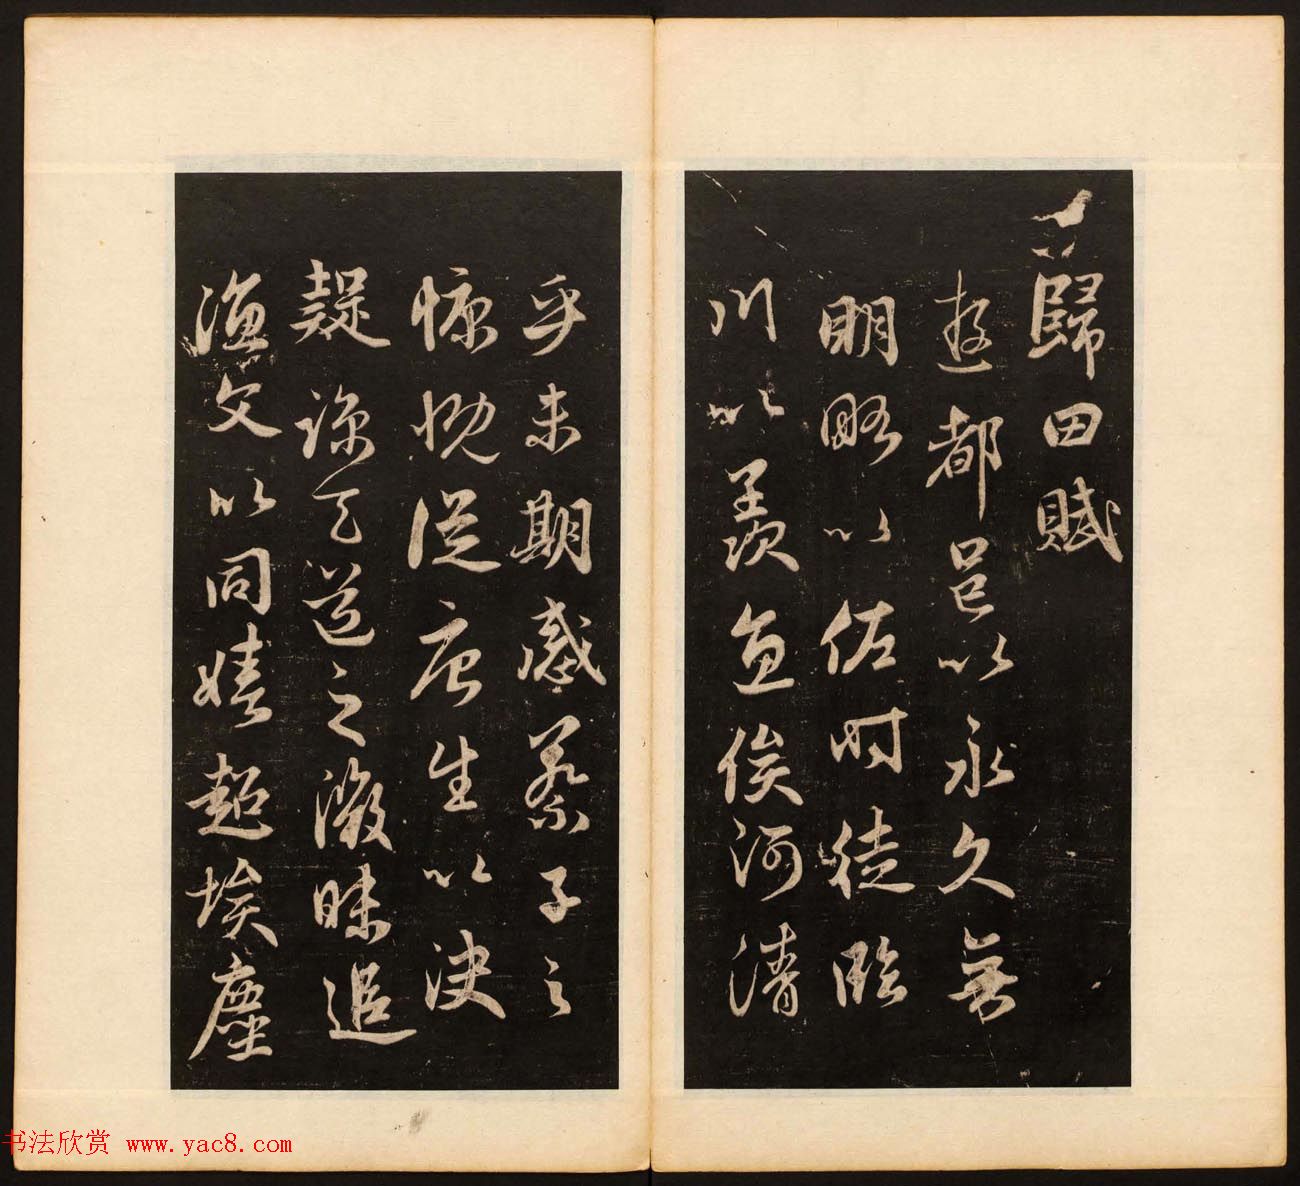 歸田賦
遊都邑以永久無
明略以佐時徒臨
川以羨魚俟河清
乎未期感蔡子之
慷慨從唐生以決
疑諒天道之微昧追
漁父以同嬉超埃塵
书法欣赏 www.yac8.com